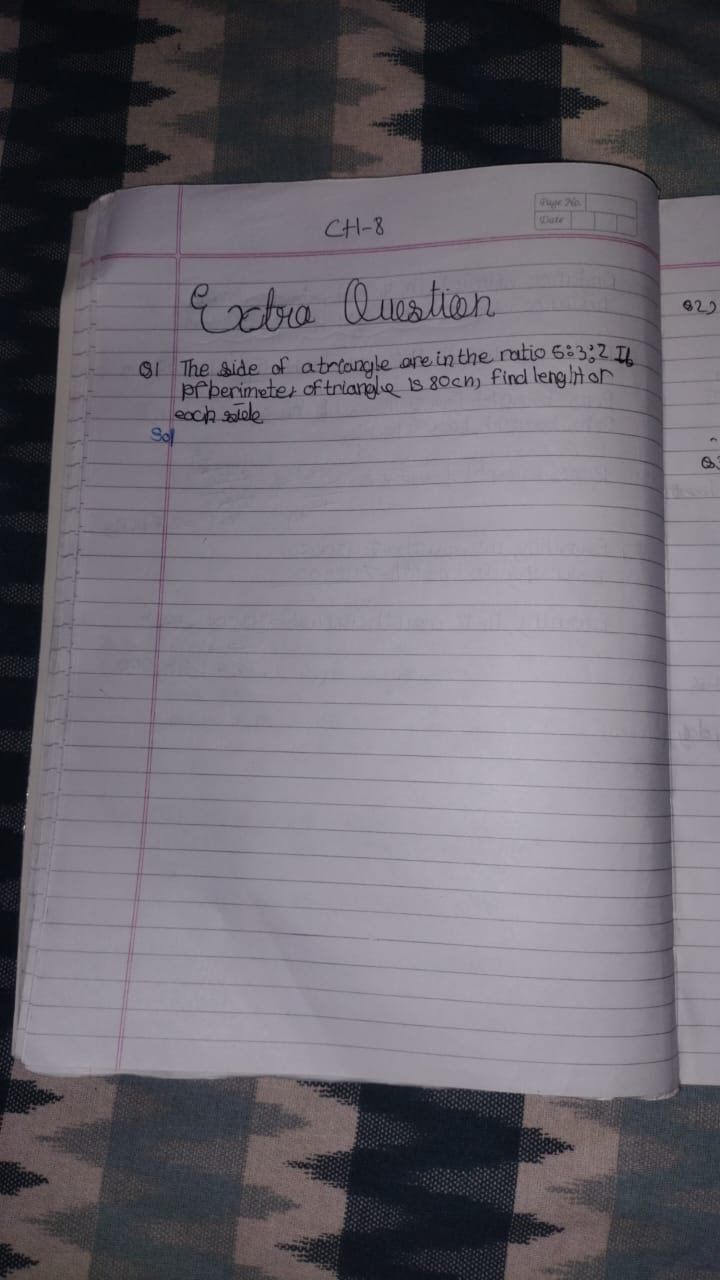 Page No.
Date
CH-8
Extra Question
Q1 The side of a triangle are in the ratio 5:3:2 If
pf perimeter of triangle is 80cm, find lenght or
each side
Sol
Q2)